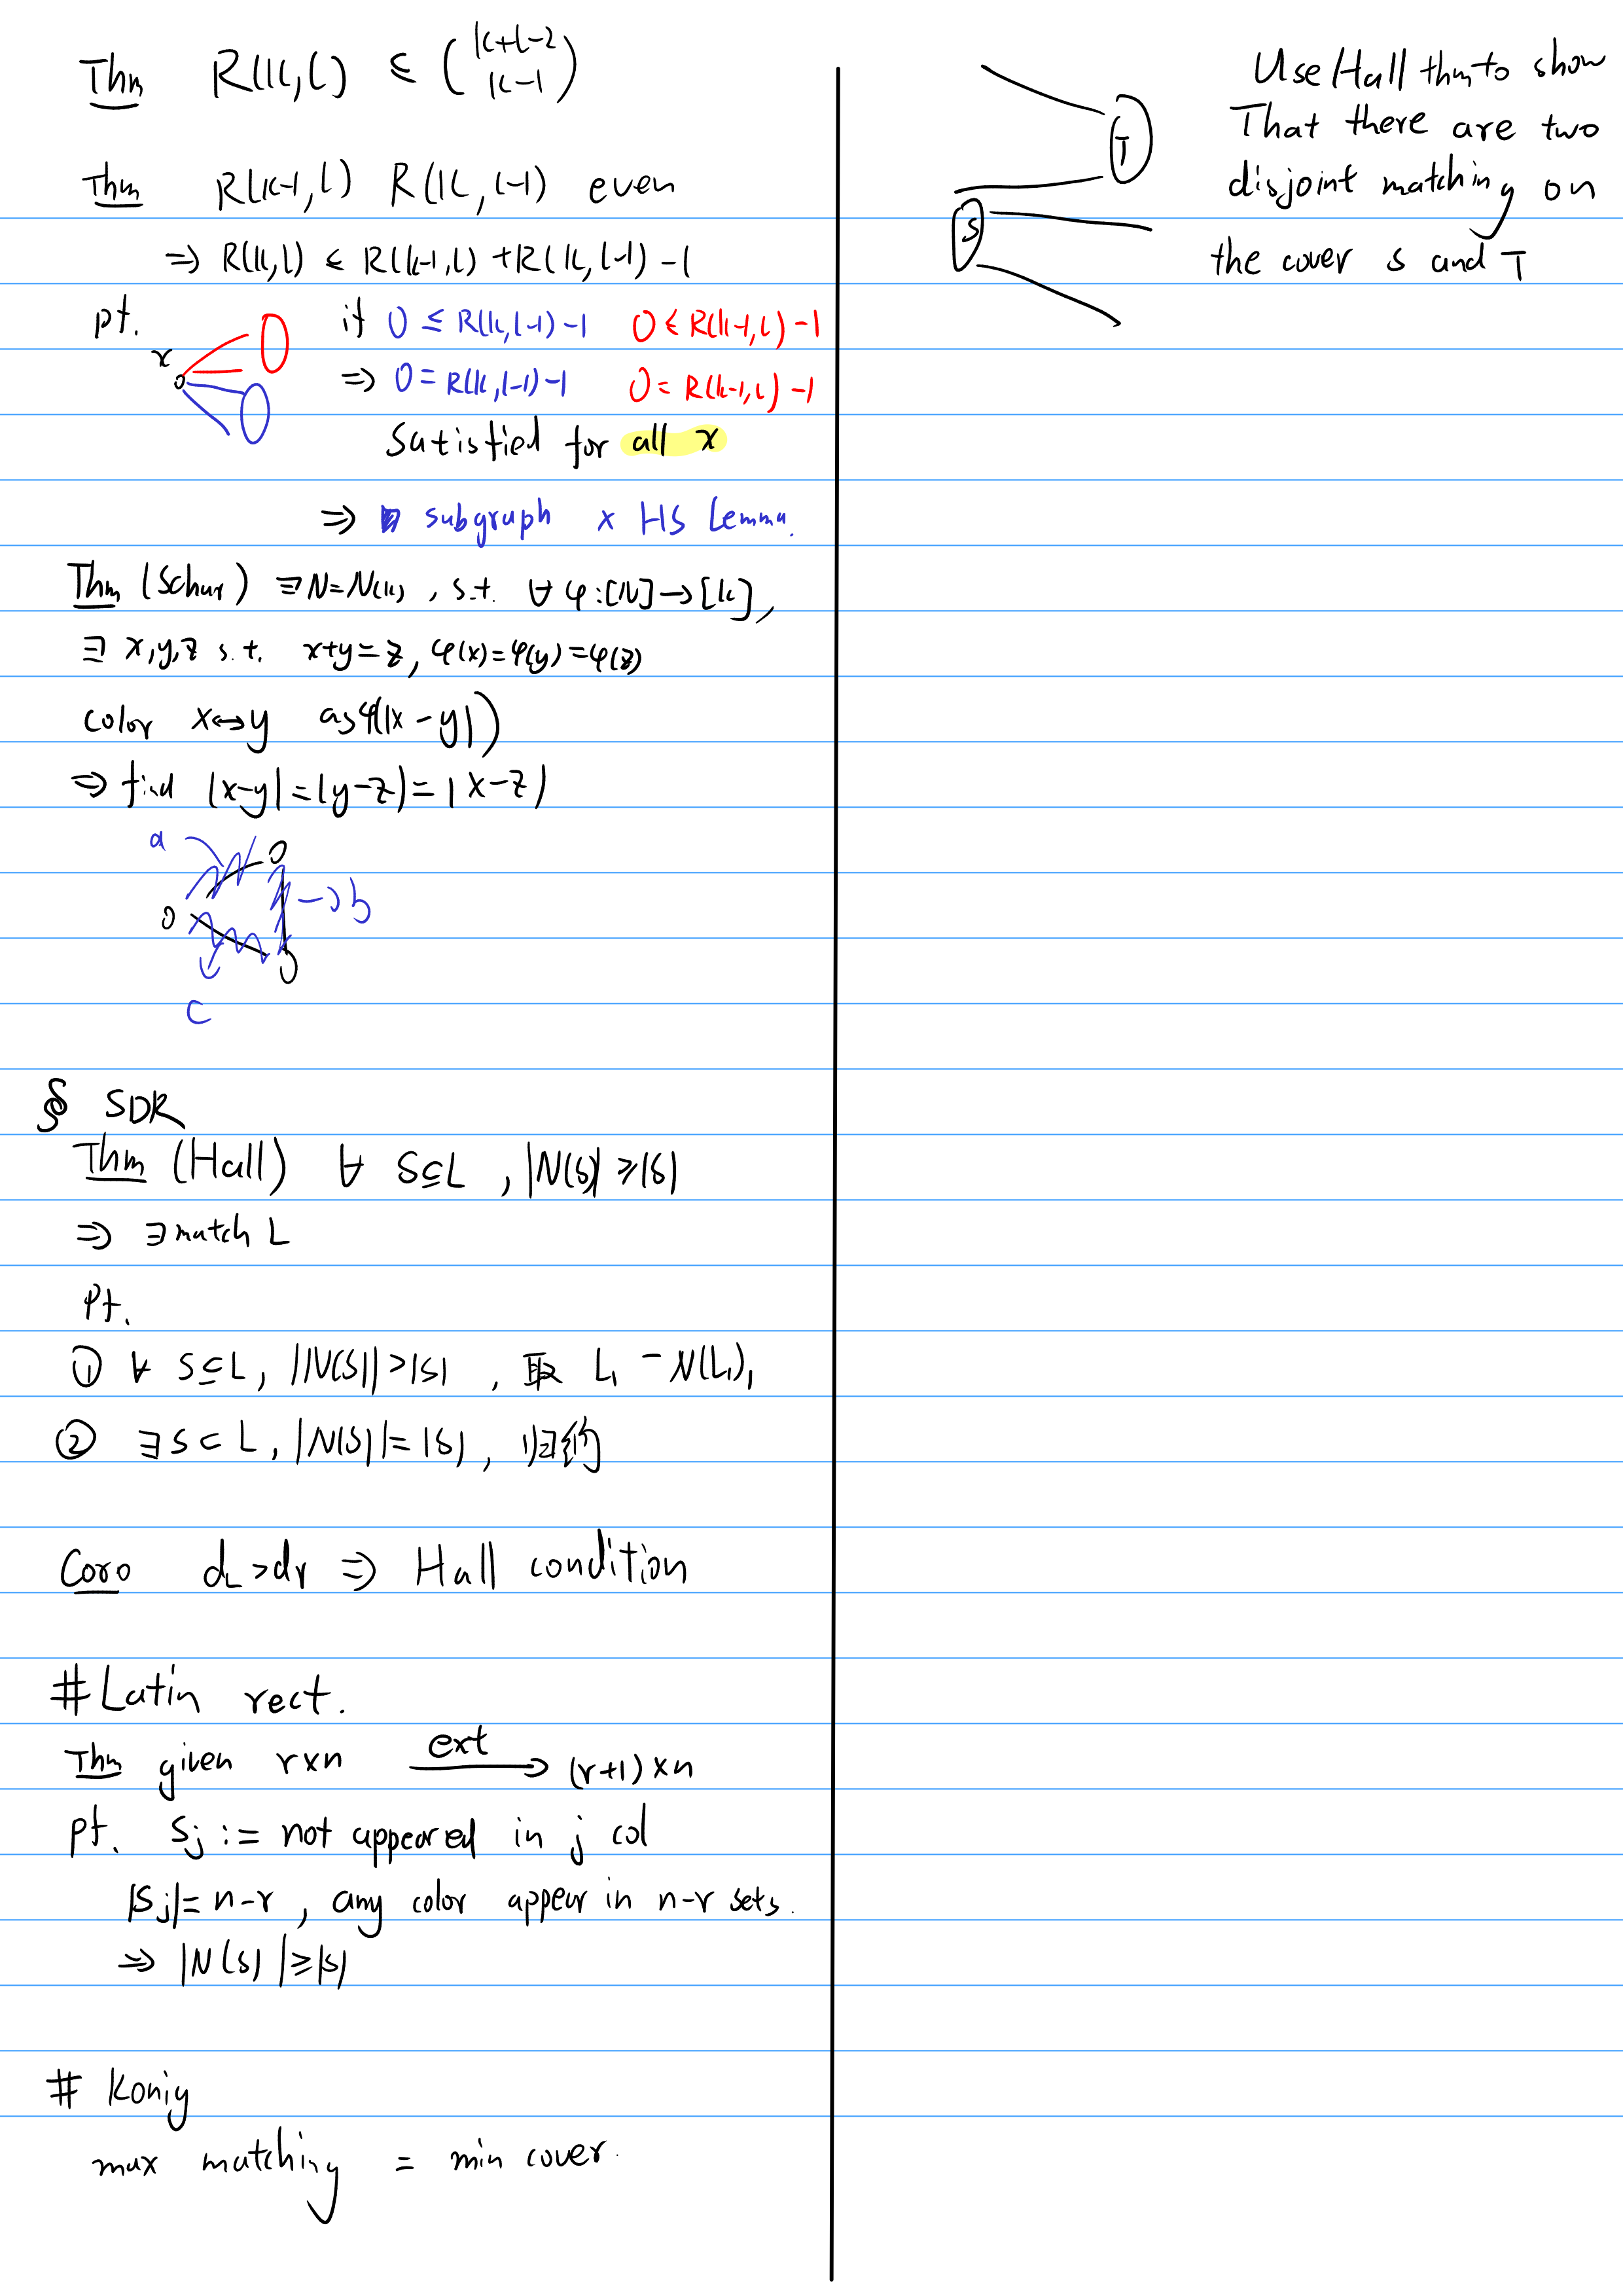 Thm R(k,l) ≤ (k+l-2 k-1)
Thm R(k-1,l) R(k,l-1) even
⇒ R(k,l) ≤ R(k-1,l) + R(k,l-1) -1
pf.
x
if 0 ≤ R(k,l-1)-1 0 ≤ R(k-1,l)-1
⇒ 0 = R(k,l-1)-1 0 = R(k-1,l)-1
Satisfied for all x
⇒ subgraph x HS Lemma.
Thm (Schur) ∃ N=N(k), s.t. ∀ φ:[N]→[k],
∃ x,y,z s.t. x+y=z, φ(x)=φ(y)=φ(z)
color x↔y as φ(|x-y|)
⇒ find |x-y|=|y-z|=|x-z|
a
→b
c
§ SDR
Thm (Hall) ∀ S⊆L, |N(S)| ≥|S|
⇒ ∃ match L
Pf.
① ∀ S⊆L, |N(S)|>|S|, 取 L₁ - N(L₁),
② ∃ S⊂L, |N(S)|=|S|, 归约
Coro d_L>d_r ⇒ Hall condition
# Latin rect.
Thm given r×n ext → (r+1)×n
pf. S_j := not appeared in j col
|S_j|= n-r, any color appear in n-r sets.
⇒ |N(S)| ≥|S|
# Konig
max matching = min cover.
T
S
Use Hall thm to show
That there are two
disjoint matching on
the cover S and T